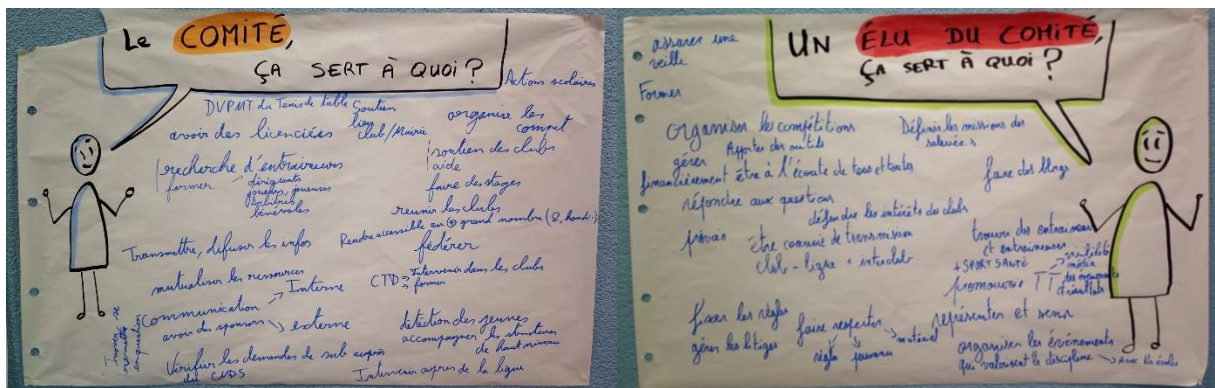 Le COMITÉ,
ÇA SERT À QUOI ?
Actions scolaires
DVPMT du Tenis de table
Soutien
lien
club/Mairie
organiser les
compet
avoir des licenciées
recherche d'entraineurs
former → dirigeants
joueurs, joueuses
arbitres
bénévoles
soutien des clubs
aide
faire des stages
reunir les clubs
Rendre accessible au ⊕ grand nombre (♀, handi.)
Transmettre, diffuser les infos
fédérer
mutualiser les ressources
CTD → Intervenir dans les clubs
→ former
Communication → Interne
→ externe
avoir des sponsors
détection des jeunes
accompagner les structures
de haut niveau
Innover, se
remettre
en question
Vérifier les demandes de sub auprès
du CNDS
Intervenir auprès de la ligue
UN ÉLU DU COMITÉ,
ÇA SERT À QUOI ?
assurer une
veille
Former
organiser les compétitions
Apporter des outils
Définir les missions des
salarié.s
gérer
financièrement
être à l'écoute de tous et toutes
faire des blogs
répondre aux questions
défendre les intérêts des clubs
être courroie de transmission
club - ligue + interclub
trouver des entraineurs
et entraineuses
+ SPORT SANTÉ
promouvoir TT → visibilité
média
et résultats
fixer les règles
gérer les litiges
faire respecter → matériel
règles
personnes
représenter et venir
organiser les événements
qui valorisent la discipline → avec les écoles